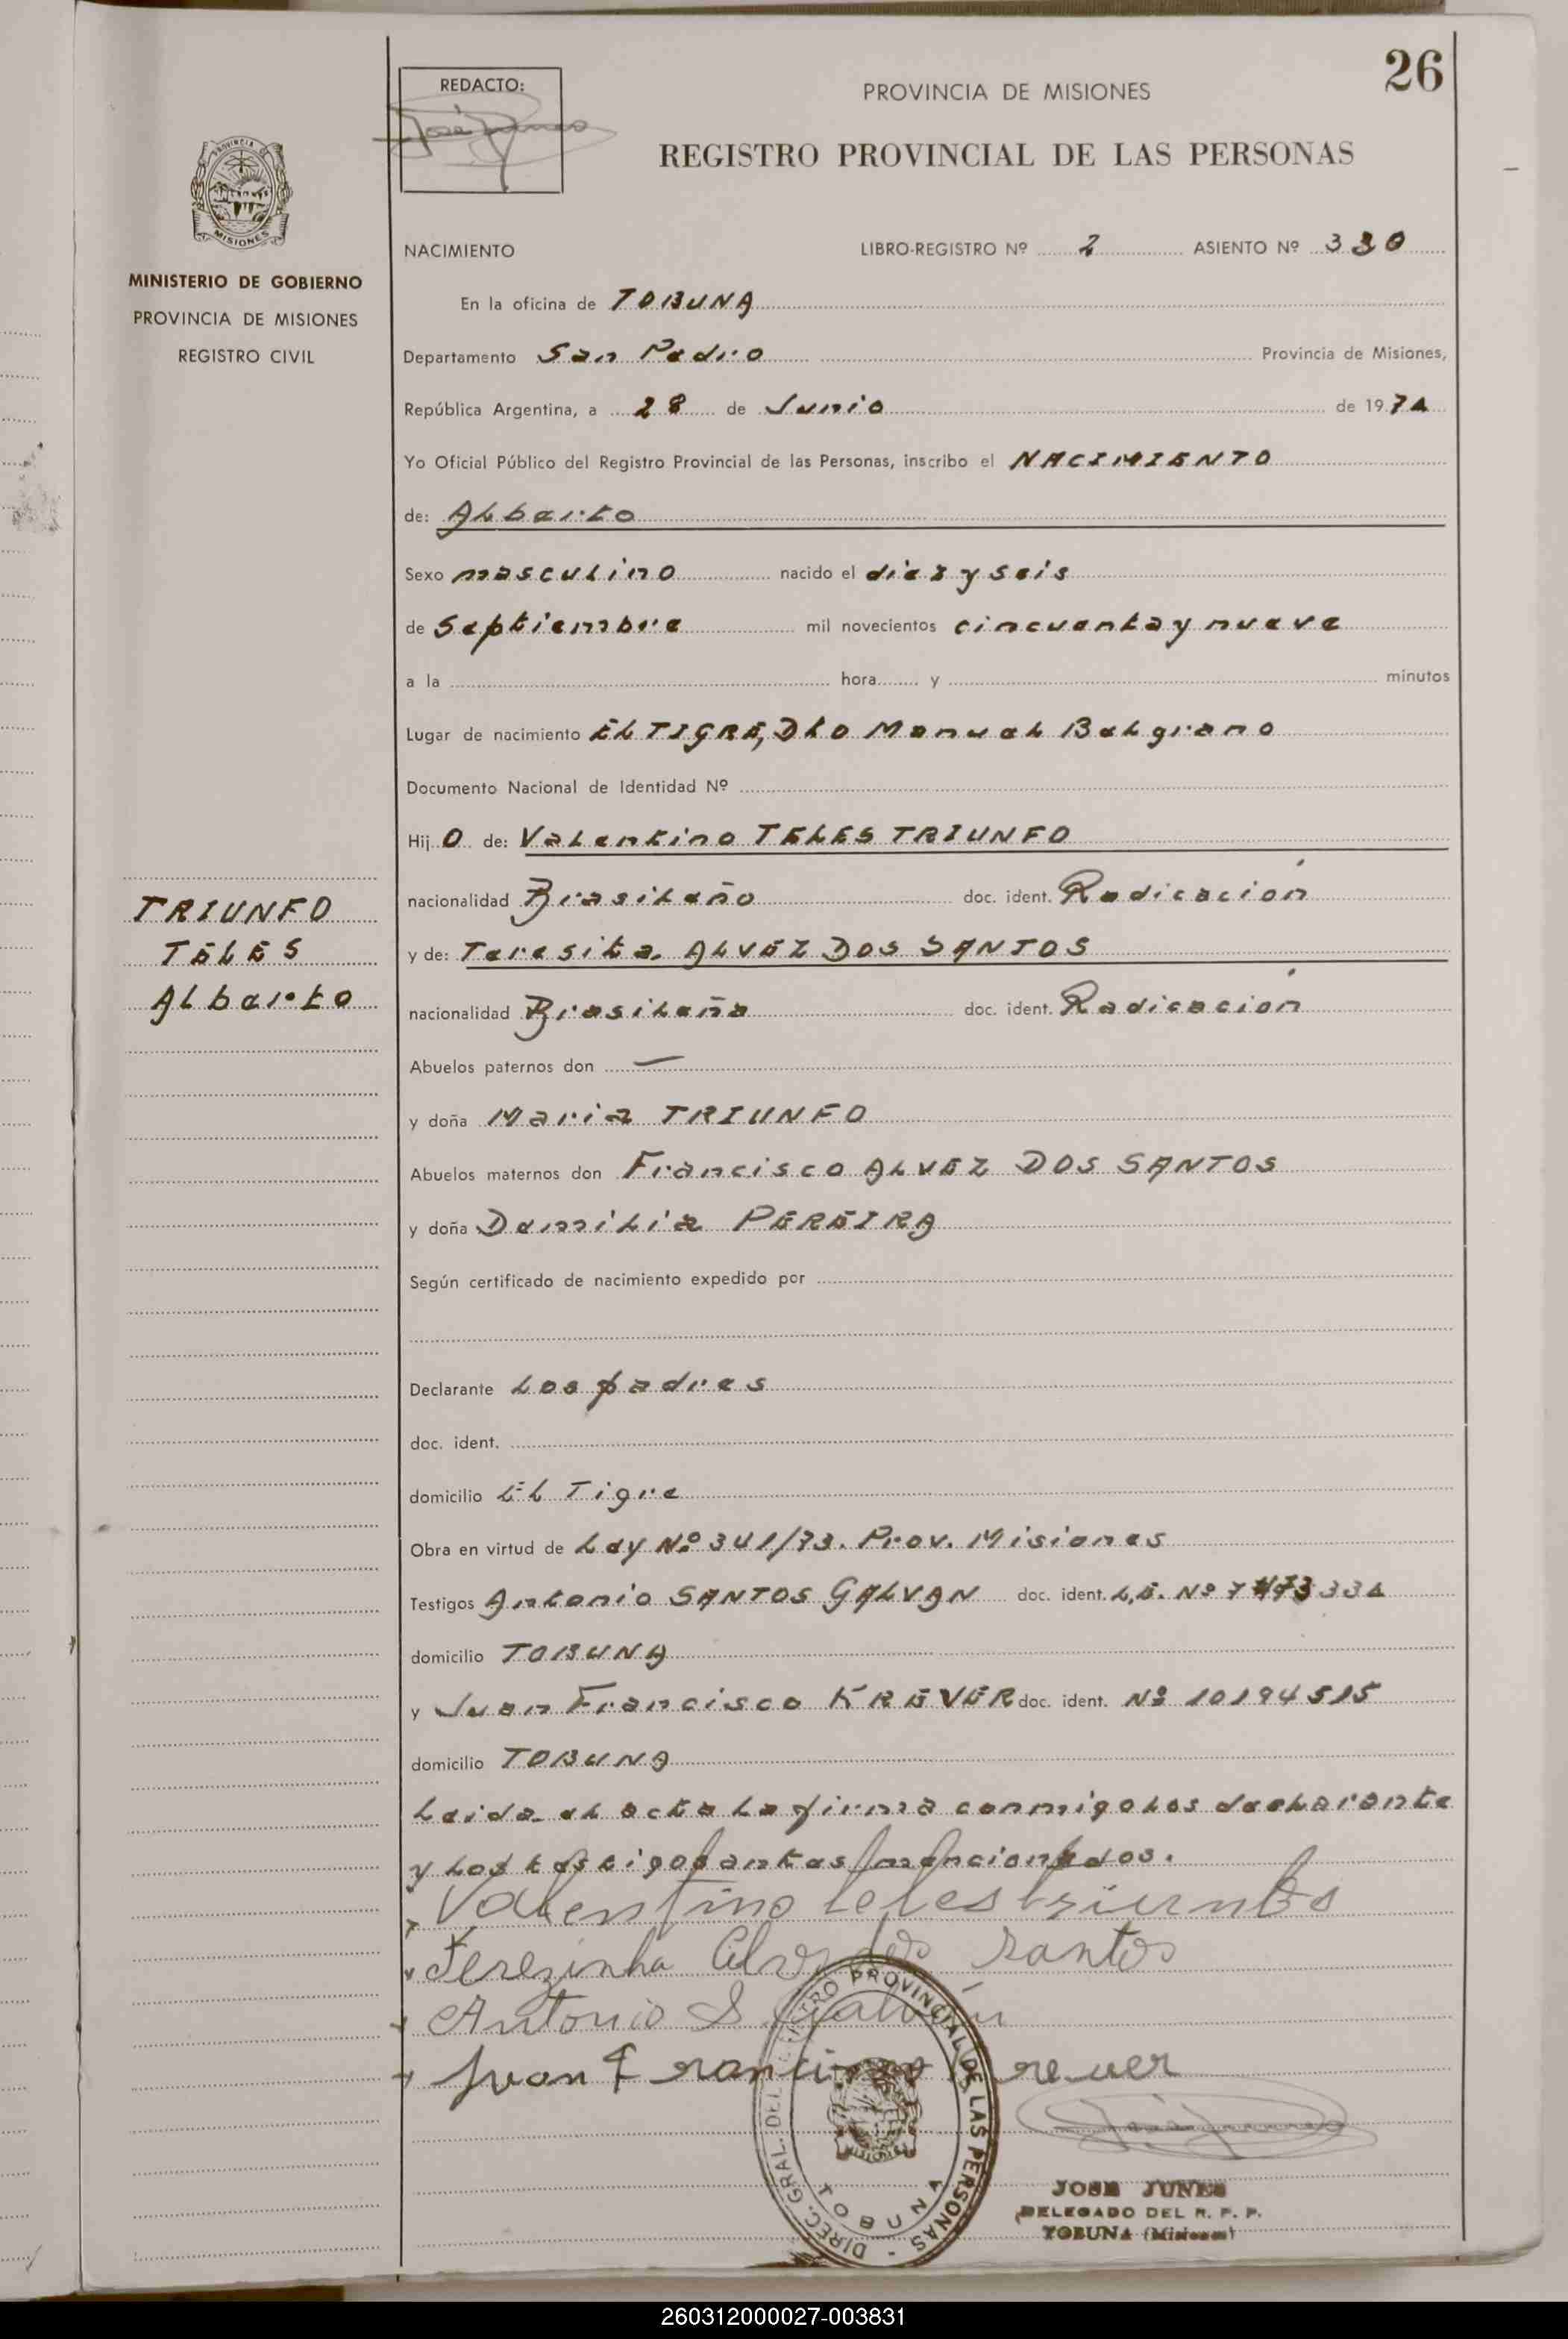 26
REDACTO:
PROVINCIA DE MISIONES
REGISTRO PROVINCIAL DE LAS PERSONAS
PROVINCIA DE
MISIONES
MINISTERIO DE GOBIERNO
PROVINCIA DE MISIONES
REGISTRO CIVIL
NACIMIENTO LIBRO-REGISTRO Nº 2 ASIENTO Nº 330
En la oficina de TOBUNA
Departamento San Pedro Provincia de Misiones,
República Argentina, a 28 de Junio de 1974
Yo Oficial Público del Registro Provincial de las Personas, inscribo el NACIMIENTO
de: ALberto
Sexo mascuLino nacido el diez y seis
de septiembre mil novecientos cincuenta y nueve
a la hora y minutos
Lugar de nacimiento EL TIGRE, DLO ManueL BeLgrano
Documento Nacional de Identidad Nº
Hij O de: VaLentino TELES TRIUNFO
nacionalidad BrasiLeño doc. ident. Radicación
y de: Teresita ALVEZ DOS SANTOS
nacionalidad BrasiLeña doc. ident. Radicación
TRIUNFO
TELES
ALberto
Abuelos paternos don —
y doña Maria TRIUNFO
Abuelos maternos don Francisco ALVEZ DOS SANTOS
y doña DemiLia PEREIRA
Según certificado de nacimiento expedido por
Declarante Los padres
doc. ident.
domicilio EL Tigre
Obra en virtud de Ley Nº 341/73. Prov. Misiones
Testigos Antonio SANTOS GALVAN doc. ident. L.E. Nº 7473334
domicilio TOBUNA
y Juan Francisco KREVER doc. ident. Nº 10194515
domicilio TOBUNA
Leida eL acta La firma conmigo Los decLarante
y Los testigos antes mencionados.
Valentino teles triunfo
Terezinha Alves dos santos
Antonio S. Galván
Juan Francisco Krever
DIREC. GRAL. DEL REGISTRO PROVINCIAL DE LAS PERSONAS -
MISIONES
TOBUNA
JOSE JUNES
DELEGADO DEL R. P. P.
TOBUNA (Misiones)
260312000027-003831